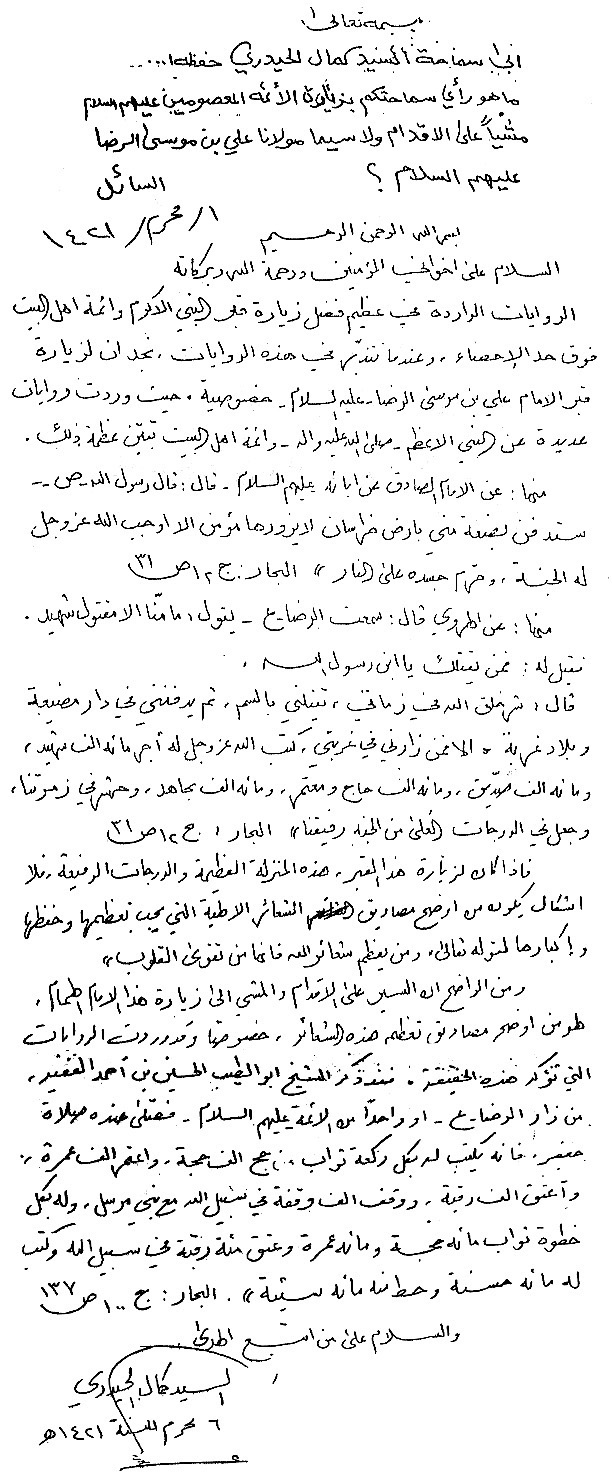 بسمه تعالى
إلى سماحة السيد كمال الحيدري حفظه الله....
ما هو رأي سماحتكم بزيارة الأئمة المعصومين عليهم السلام
مشياً على الاقدام ولا سيما مولانا علي بن موسى الرضا
عليهم السلام ؟ السائل
١/محرم/١٤٢١
بسم الله الرحمن الرحيم
السلام على اخواني المؤمنين ورحمة الله وبركاته
الروايات الواردة في عظيم فضل زيارة قبر النبي الاكرم وائمة اهل البيت
فوق حد الإحصاء ، وعندما نتدبر في هذه الروايات ، نجد ان لزيارة
قبر الامام علي بن موسى الرضا - عليه السلام - خصوصية ، حيث وردت روايات
عديدة عن النبي الاعظم - صلى الله عليه واله - وائمة اهل البيت تبين عظمة ذلك .
منها : عن الامام الصادق عن ابائه عليهم السلام - قال : قال رسول الله - ص --
ستدفن بضعة مني بارض خراسان لا يزورها مؤمن الا اوجب الله عز وجل
له الجنة ، وحرم جسده على النار » البحار : ج ١٠٢ ص ٣١
منها : عن الهروي قال : سمعت الرضا - ع - يقول : ما منّا الا مقتول شهيد .
فقيل له : فمن يقتلك يا ابن رسول الله ،
قال : شر خلق الله في زماني ، يقتلني بالسم ، ثم يدفنني في دار مضيعة
وبلاد غربة ، الا فمن زارني في غربتي ، كتب الله عز وجل له أجر مائة الف شهيد ،
ومائة الف صدّيق ، ومائة الف حاج ومعتمر ، ومائة الف مجاهد ، وحشر في زمرتنا ،
وجعل في الدرجات العلى من الجنة رفيقنا » البحار : ج ١٠٢ ص ٣١
فاذا كان لزيارة هذا القبر ، هذه المنزلة العظيمة والدرجات الرفيعة ، فلا
اشكال يكون من اوضح مصاديق الشعائر الالهية التي يجب تعظيمها وحفظها
و إكبارها لقوله تعالى « ومن يعظم شعائر الله فانها من تقوى القلوب »
ومن الواضح ان السير على الاقدام والمشي الى زيارة هذا الامام الهمام ،
لهو من اوضح مصاديق تعظيم هذه الشعائر ، خصوصا وقد وردت الروايات
التي تؤكد هذه الحقيقة . فقد ذكر الشيخ ابو الطيب الحسين بن أحمد الفقيه ،
من زار الرضا - ع - او واحداً من الائمة عليهم السلام - فصلى عنده صلاة
جعفر ، فانه يكتب له بكل ركعة ثواب من حج الف حجة ، واعتمر الف عمرة ،
وأعتق الف رقبة ، ووقف الف وقفة في سبيل الله مع نبي مرسل ، وله بكل
خطوة ثواب مائة حجة ومائة عمرة وعتق مئة رقبة في سبيل الله وكتب
له مائة حسنة وحط منه مائة سيئة » . البحار : ج ١٠٠ ص ١٣٧
والسلام على من اتبع الهدى
السيد كمال الحيدري
٦ محرم لسنة ١٤٢١هـ